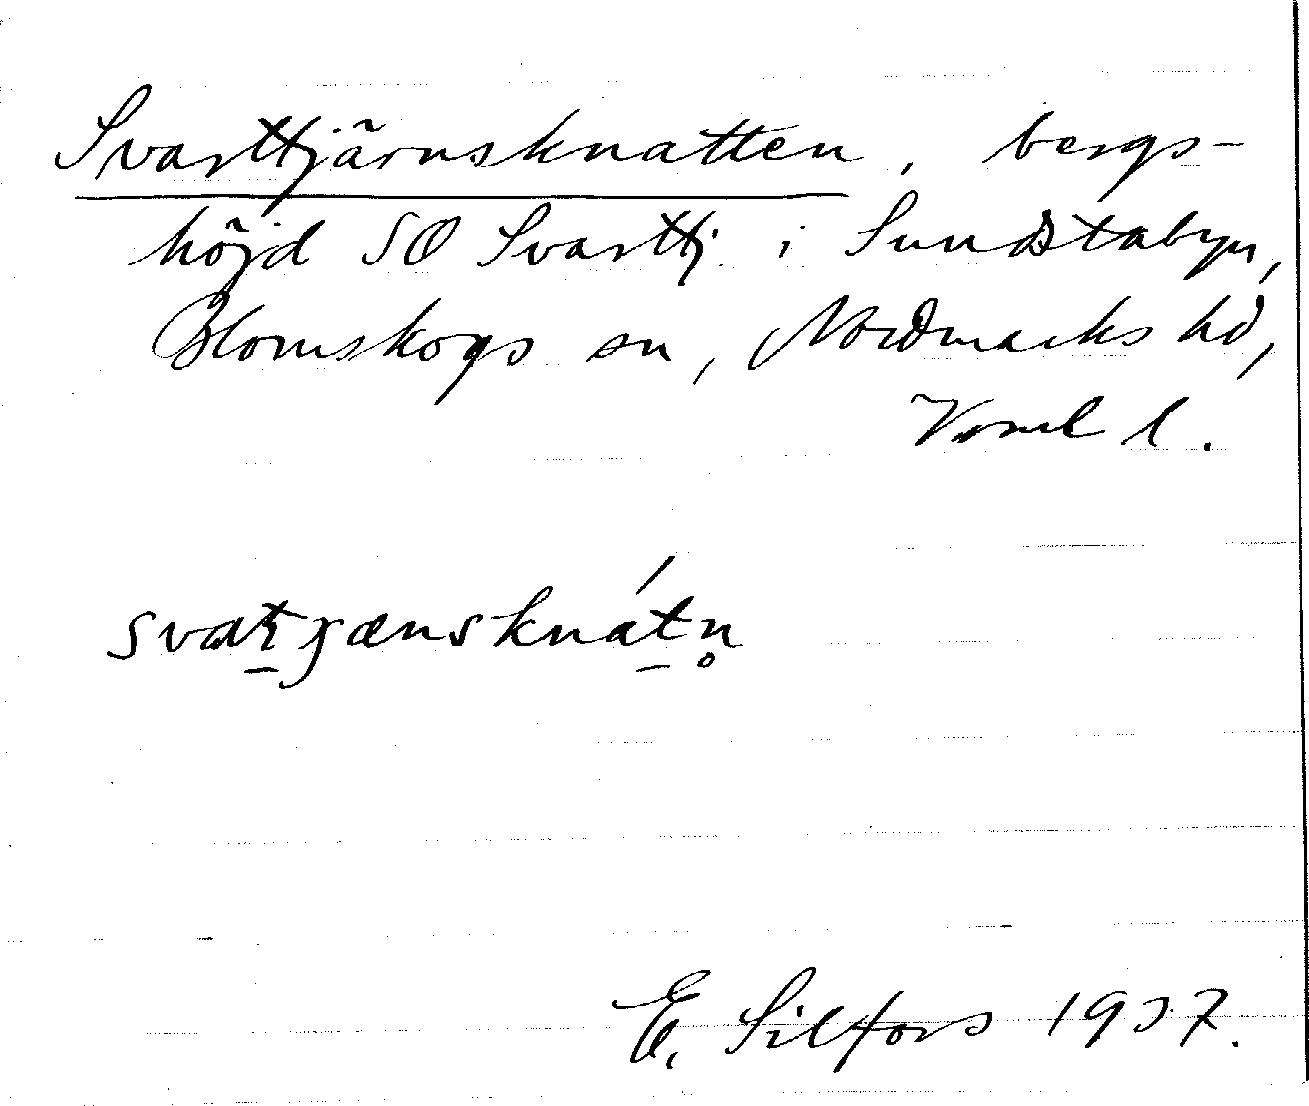 Svarttjärnsknatten, bergs-
höjd SO Svarttj. i Sundstabyn,
Blomskogs sn, Nordmarks hd,
Värml l.
svat̲jænsknát̲n̥
E. Silfors 1937.